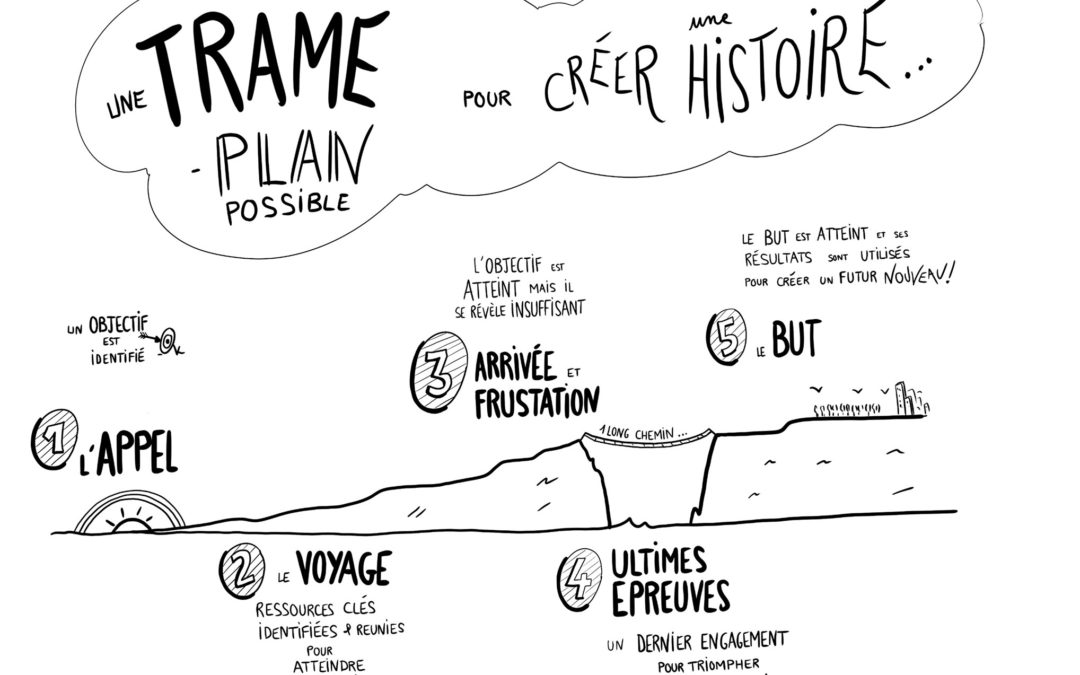 UNE TRAME
- PLAN
POSSIBLE
POUR CRÉER une HISTOIRE...
UN OBJECTIF
EST
IDENTIFIÉ
1 L'APPEL
2 LE VOYAGE
RESSOURCES CLÉS
IDENTIFIÉES & REUNIES
POUR
ATTEINDRE
L'OBJECTIF EST
ATTEINT MAIS IL
SE RÉVÈLE INSUFFISANT
3 ARRIVÉE ET
FRUSTATION
1 LONG CHEMIN...
4 ULTIMES
EPREUVES
UN DERNIER ENGAGEMENT
POUR TRIOMPHER
LE BUT EST ATTEINT ET SES
RÉSULTATS SONT UTILISÉS
POUR CRÉER UN FUTUR NOUVEAU!
5 LE BUT